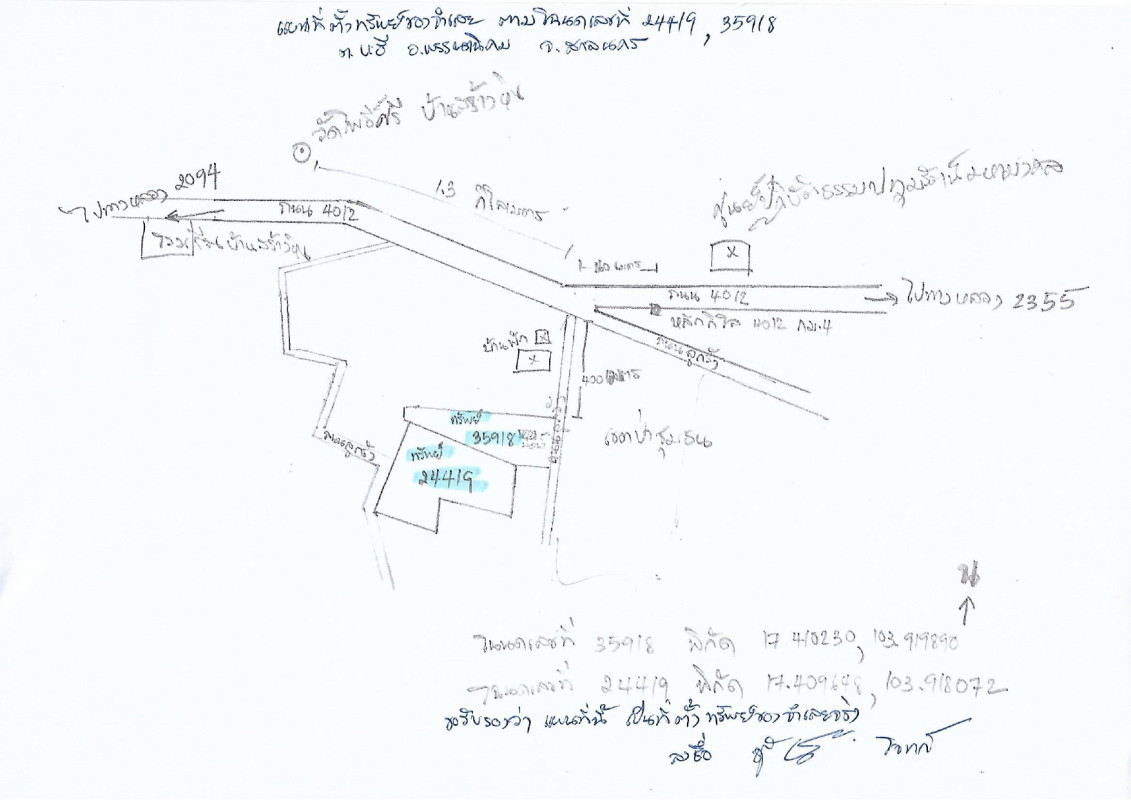 แผนที่ตั้งทรัพย์ของจำเลย ตามโฉนดเลขที่ 24419, 35918
ต.บะฮี อ.พรรณานิคม จ.สกลนคร
วัดโพธิ์ศรี บ้านสร้างหิน
ไปทางหลวง 2094
1.3 กิโลเมตร
ถนน 4012
โรงเรียนบ้านสร้างหิน
ศูนย์ปฏิบัติธรรม
เมตร
ถนน 4012
ไปทางหลวง 2355
หลักกิโล 4012 กม.4
ถนนลูกรัง
บ้านพัก
400 เมตร
ทรัพย์
35918
เขตป่าชุมชน
ถนนลูกรัง
ทรัพย์
24419
น
โฉนดเลขที่ 35918 พิกัด 17.410230, 103.919890
โฉนดเลขที่ 24419 พิกัด 17.409648, 103.918072
ขอรับรองว่า แผนที่นี้ เป็นที่ตั้งทรัพย์ของจำเลยจริง
ลงชื่อ โจทก์